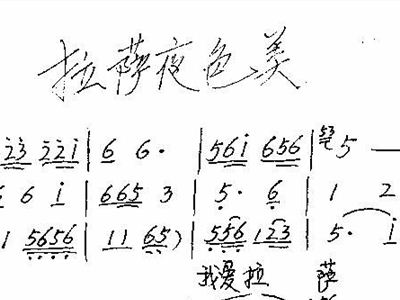 拉萨夜色美
2 3 2 2 1 | 6 6 · | 5 6 1 6 5 6 | 5 —
6 6 1 | 6 6 5 3 | 5 · 6 | 1 2
1 5 6 5 6 | 1 1 6 5 ) | 5 5 6 1 2 3 | 5 · 1
我爱拉 萨